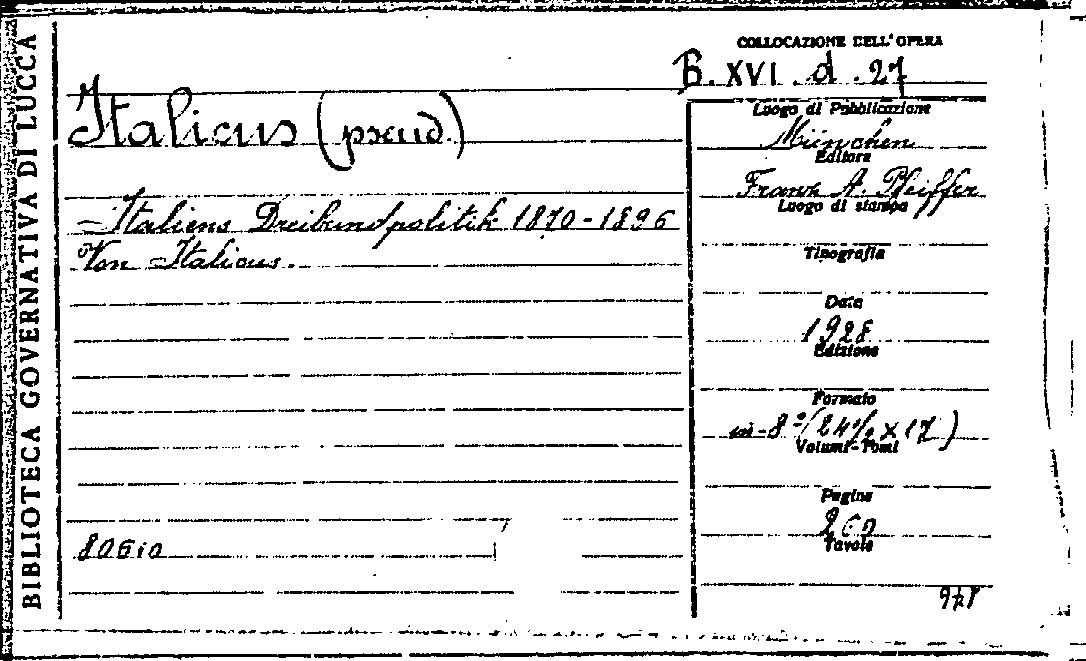 BIBLIOTECA GOVERNATIVA DI LUCCA
COLLOCAZIONE DELL'OPERA
B. XVI. d. 27
Italicus (pseud.)
Italiens Dreibundpolitik 1870-1896
Von Italicus.
80610
Luogo di Pubblicazione
München
Editore
Franz A. Pfeiffer
Luogo di stampa
Tipografia
Data
1928
Edizione
Formato
in-8° (24½ x 17)
Volumi-Tomi
Pagine
Tavole